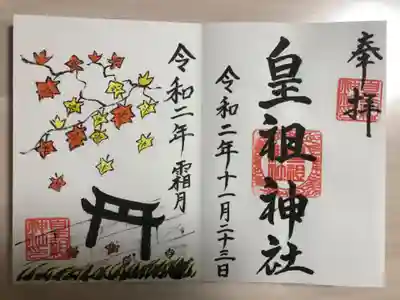 奉拝
皇祖神社
令和二年十一月二十三日
令和二年 霜月